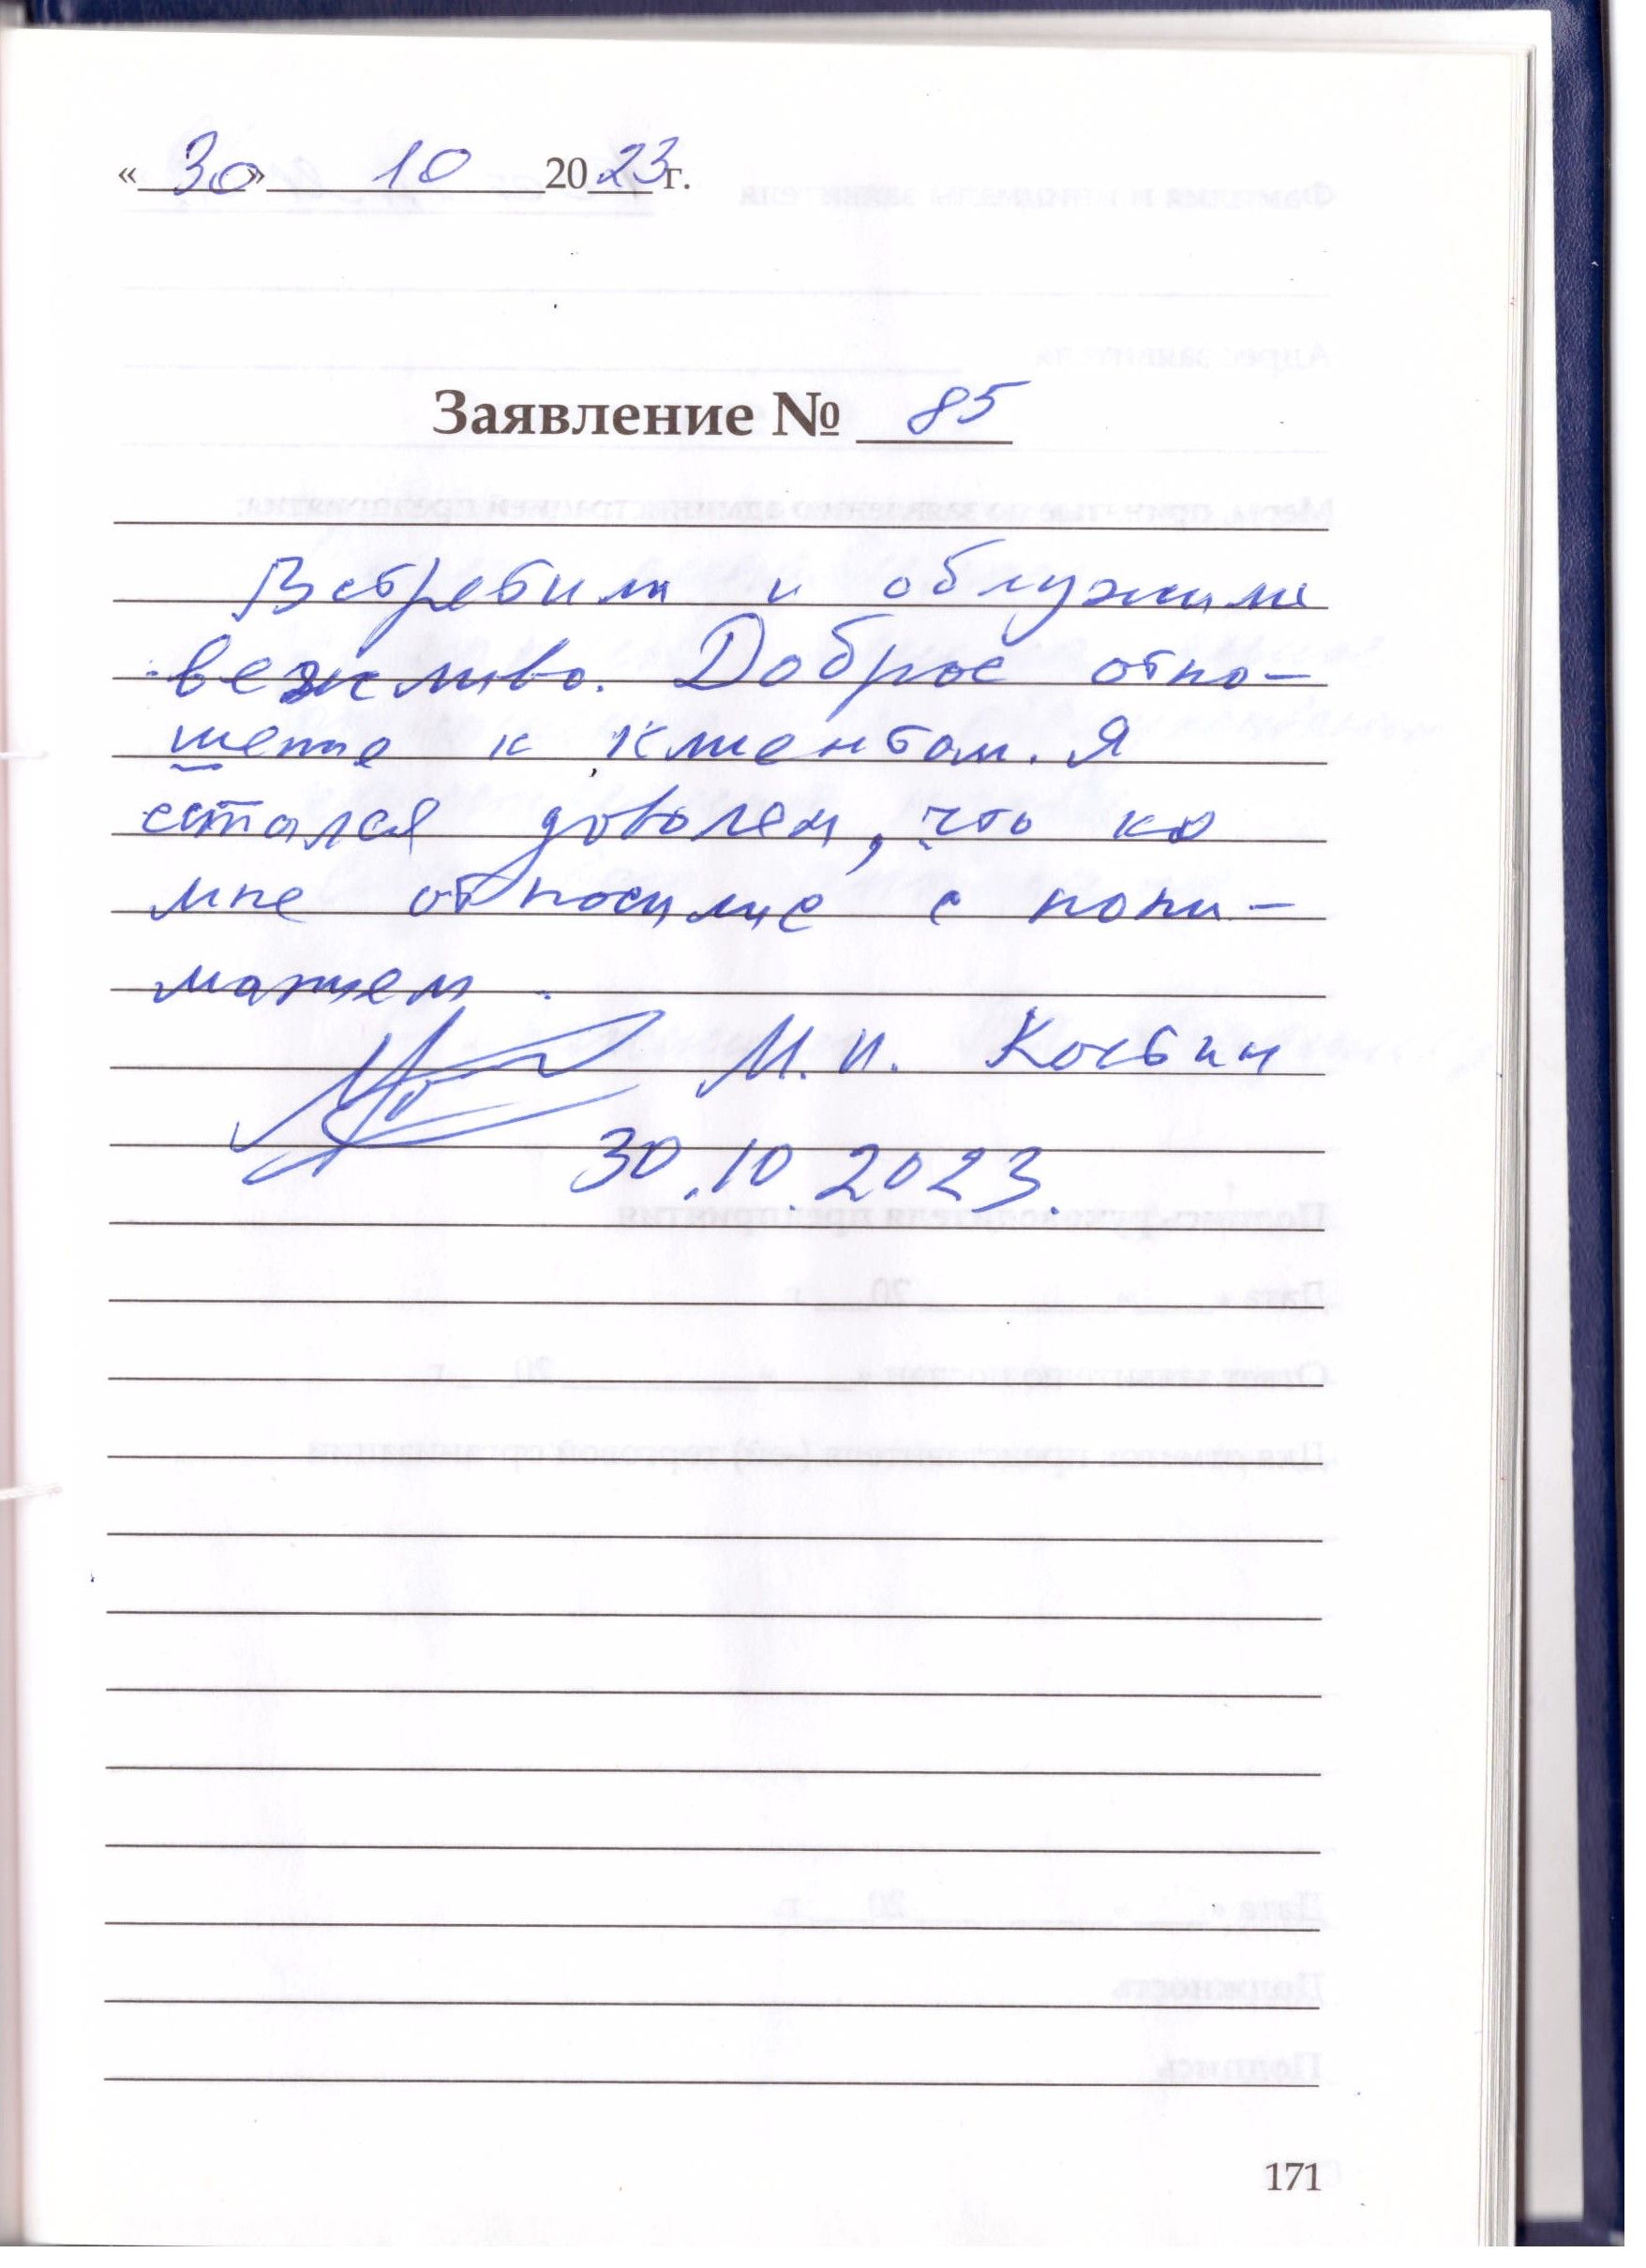 «30» 10 2023 г.
Заявление № 85
Встретили и облужили
вежливо. Доброе отно-
шение к клиентам. Я
остался доволен, что ко
мне относились с пони-
манием.
М.И. Костин
30.10.2023.
171